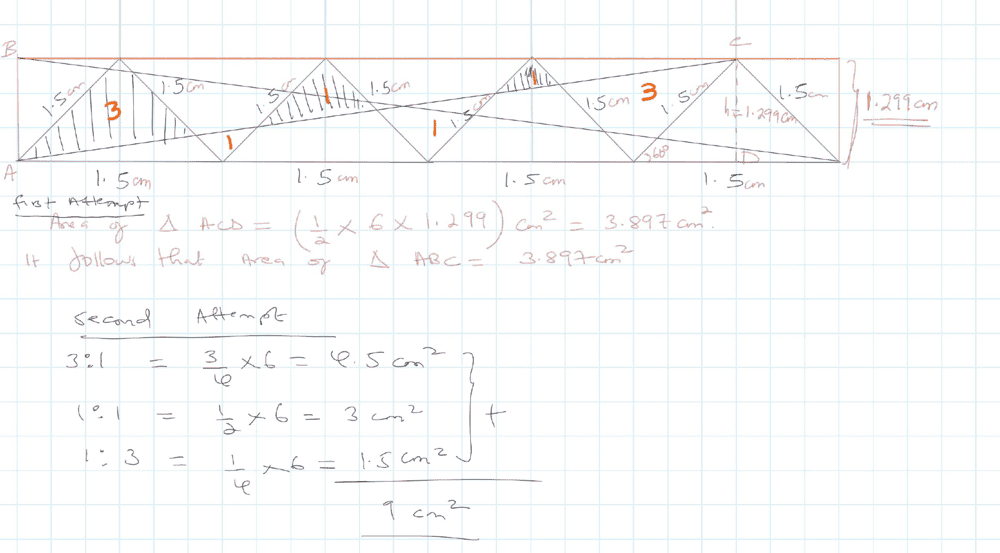 B
C
1.5cm
1.5cm
1.5cm
1.5cm
1.5cm
1.5cm
1.5cm
1.5cm
3
1
1
1
1
3
h=1.299cm
1.299cm
A
60°
D
1.5cm
1.5cm
1.5cm
1.5cm
first Attempt
Area of Δ ACD = (1/2 × 6 × 1.299) cm² = 3.897cm².
It follows that Area of Δ ABC = 3.897cm²
Second Attempt
3:1 = 3/4 × 6 = 4.5 cm²
1:1 = 1/2 × 6 = 3 cm²
+
1:3 = 1/4 × 6 = 1.5 cm²
9 cm²